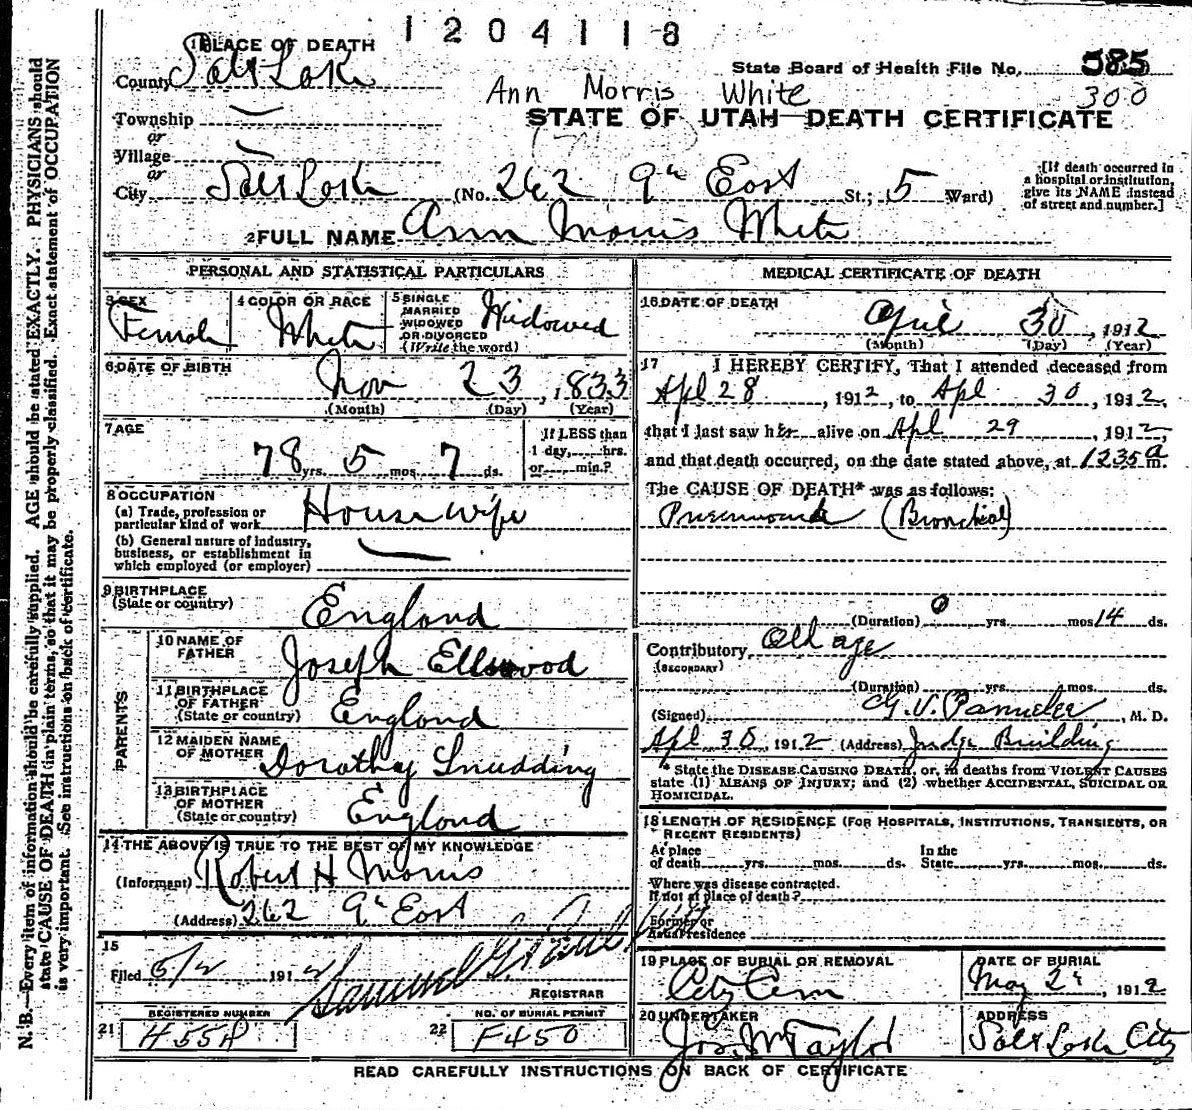 1204118
1 PLACE OF DEATH
County Salt Lake
State Board of Health File No. 585
300
Ann Morris White
STATE OF UTAH—DEATH CERTIFICATE
Township
or
Village
or
City Salt Lake (No. 262 9th East St.; 5 Ward)
[If death occurred in
a hospital or institution,
give its NAME instead
of street and number.]
2 FULL NAME Ann Morris White
PERSONAL AND STATISTICAL PARTICULARS
3 SEX
Female
4 COLOR OR RACE
White
5 SINGLE
MARRIED
WIDOWED
OR DIVORCED
(Write the word)
Widowed
6 DATE OF BIRTH
Nov 23, 1833
(Month) (Day) (Year)
7 AGE
78 yrs. 5 mos. 7 ds.
If LESS than
1 day, hrs.
or min.?
8 OCCUPATION
(a) Trade, profession or
particular kind of work Housewife
(b) General nature of industry,
business, or establishment in
which employed (or employer)
9 BIRTHPLACE
(State or country) England
PARENTS
10 NAME OF
FATHER Joseph Ellwood
11 BIRTHPLACE
OF FATHER
(State or country) England
12 MAIDEN NAME
OF MOTHER Dorothy Snudding
13 BIRTHPLACE
OF MOTHER
(State or country) England
14 THE ABOVE IS TRUE TO THE BEST OF MY KNOWLEDGE
(Informant) Robert H Morris
(Address) 262 9th East
15
Filed 5/2 1912 Samuel G. Paul
REGISTRAR
21 REGISTERED NUMBER
H 558
22 NO. OF BURIAL PERMIT
F450
MEDICAL CERTIFICATE OF DEATH
16 DATE OF DEATH
April 30, 1912
(Month) (Day) (Year)
17 I HEREBY CERTIFY, That I attended deceased from
Apl 28, 1912, to Apl 30, 1912,
that I last saw her alive on Apl 29, 1912,
and that death occurred, on the date stated above, at 1235 a m.
The CAUSE OF DEATH* was as follows:
Pneumonia (Bronchial)
(Duration) 0 yrs. mos 14 ds.
Contributory Old age
(SECONDARY)
(Duration) yrs. mos. ds.
(Signed) G. V. , M. D.
Apl 30, 1912 (Address) Judge Building
* State the DISEASE CAUSING DEATH, or, in deaths from VIOLENT CAUSES
state (1) MEANS OF INJURY; and (2) whether ACCIDENTAL, SUICIDAL OR
HOMICIDAL.
18 LENGTH OF RESIDENCE (FOR HOSPITALS, INSTITUTIONS, TRANSIENTS, OR
RECENT RESIDENTS)
At place
of death yrs. mos. ds.
In the
State yrs. mos. ds.
Where was disease contracted.
If not at place of death?
Former or
usual residence
19 PLACE OF BURIAL OR REMOVAL
City Cem
DATE OF BURIAL
May 2d, 1912
20 UNDERTAKER
Jos. Wm Taylor
ADDRESS
Salt Lake City
READ CAREFULLY INSTRUCTIONS ON BACK OF CERTIFICATE
N. B.—Every item of information should be carefully supplied. AGE should be stated EXACTLY. PHYSICIANS should
state CAUSE OF DEATH in plain terms, so that it may be properly classified. Exact statement of OCCUPATION
is very important. See instructions on back of certificate.